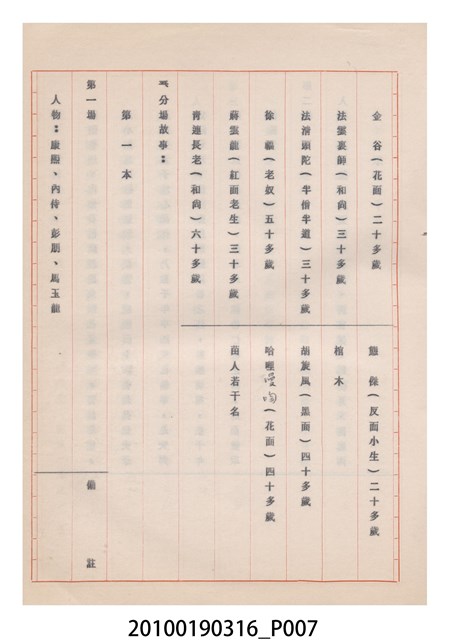 金　谷（花面）二十多歲
法靈真師（和尚）三十多歲
法清頭陀（半僧半道）三十多歲
徐　福（老奴）五十多歲
薛雲龍（紅面老生）三十多歲
青蓮長老（和尚）六十多歲
熊　傑（反面小生）二十多歲
棺　木
胡旋風（黑面）四十多歲
哈哩嘎（花面）四十多歲
苗人若干名
分場故事：
第一本
第一場
備　註
人物：康熙、內侍、彭朋、馬玉龍
20100190316_P007